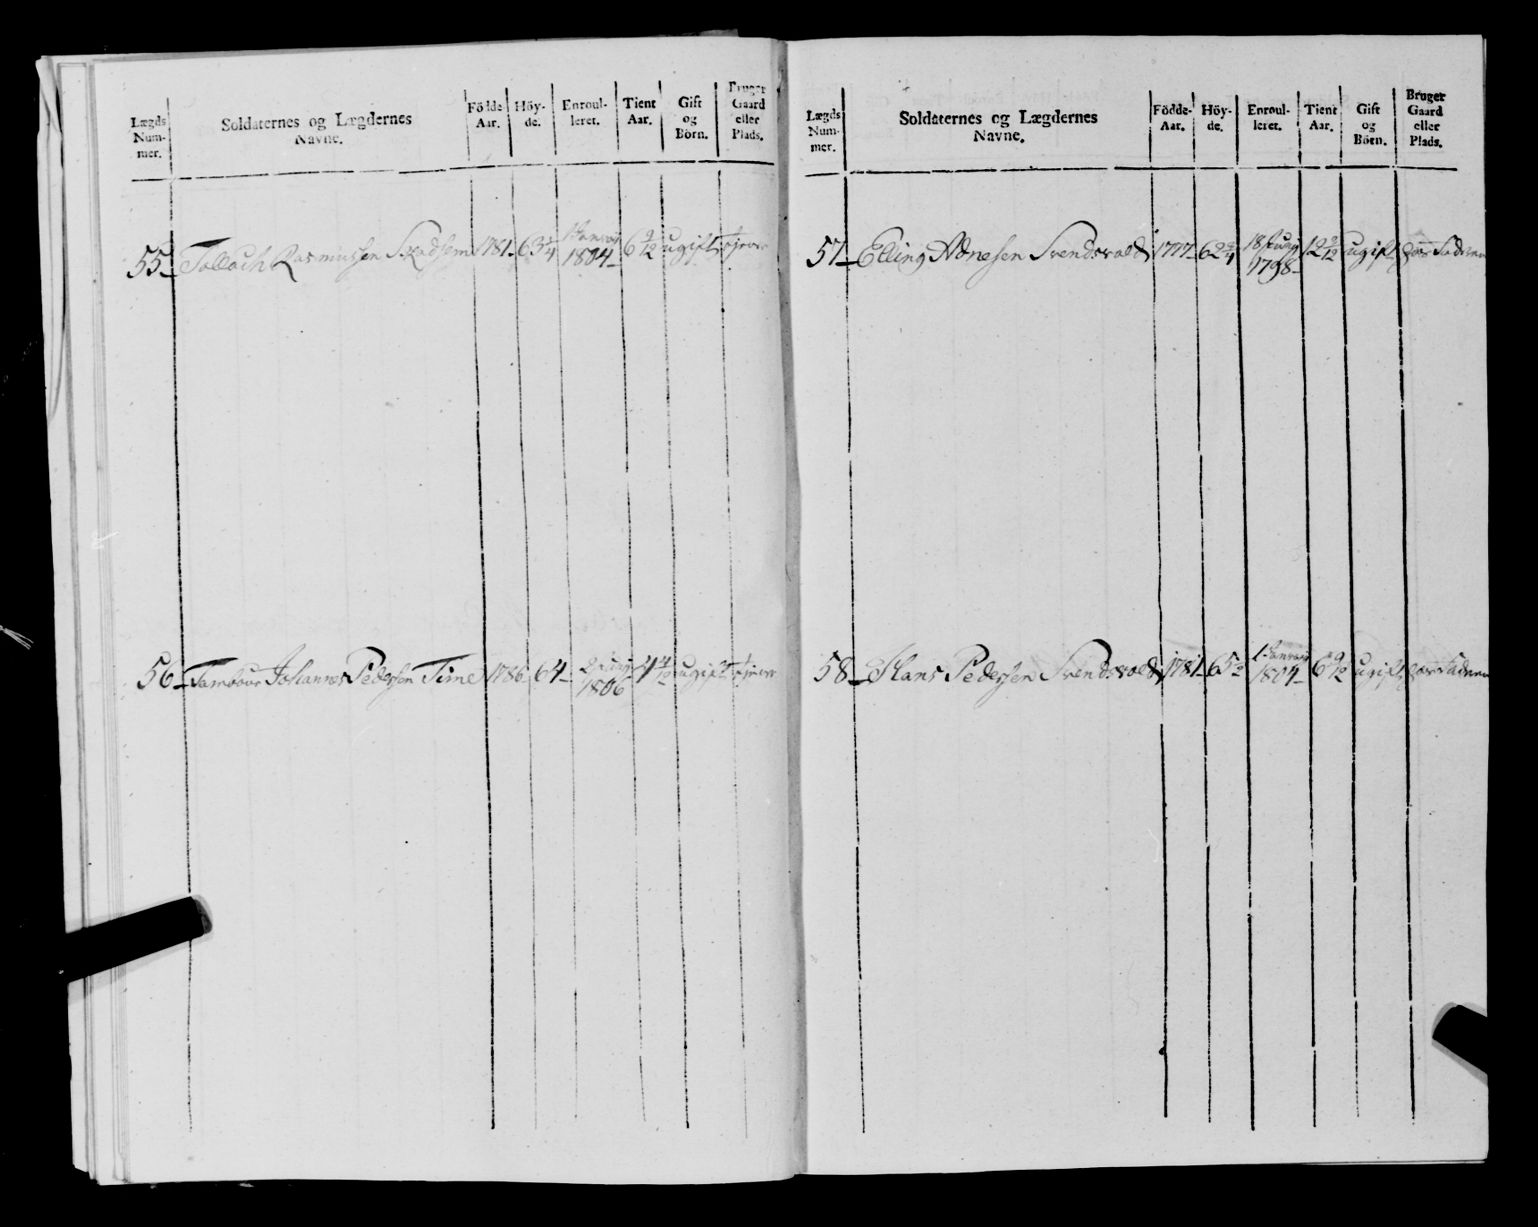 Lægds Num- mer. Soldaternes og Lægdernes Navne. Födde- Aar. Höy- de. Enroul- leret. Tient Aar. Gift og Börn. Bruger Gaard eller Plads.
55 Tollach Rasmussen 1781 63 1/4 1 Januarj 1804 6 9/12 ugift tjener
56 Tambour Johannes Pedersen Time 1786 64 1806 4 4/12 ugift tjener
Lægds Num- mer. Soldaternes og Lægdernes Navne. Födde- Aar. Höy- de. Enroul- leret. Tient Aar. Gift og Börn. Bruger Gaard eller Plads.
57 Elling Adnesen Svendsvold 1777 62 1798 12 ugift
58 Hans Pedersen Svendsvold 1781 65 1/2 1 Januarj 1804 6 9/12 ugift